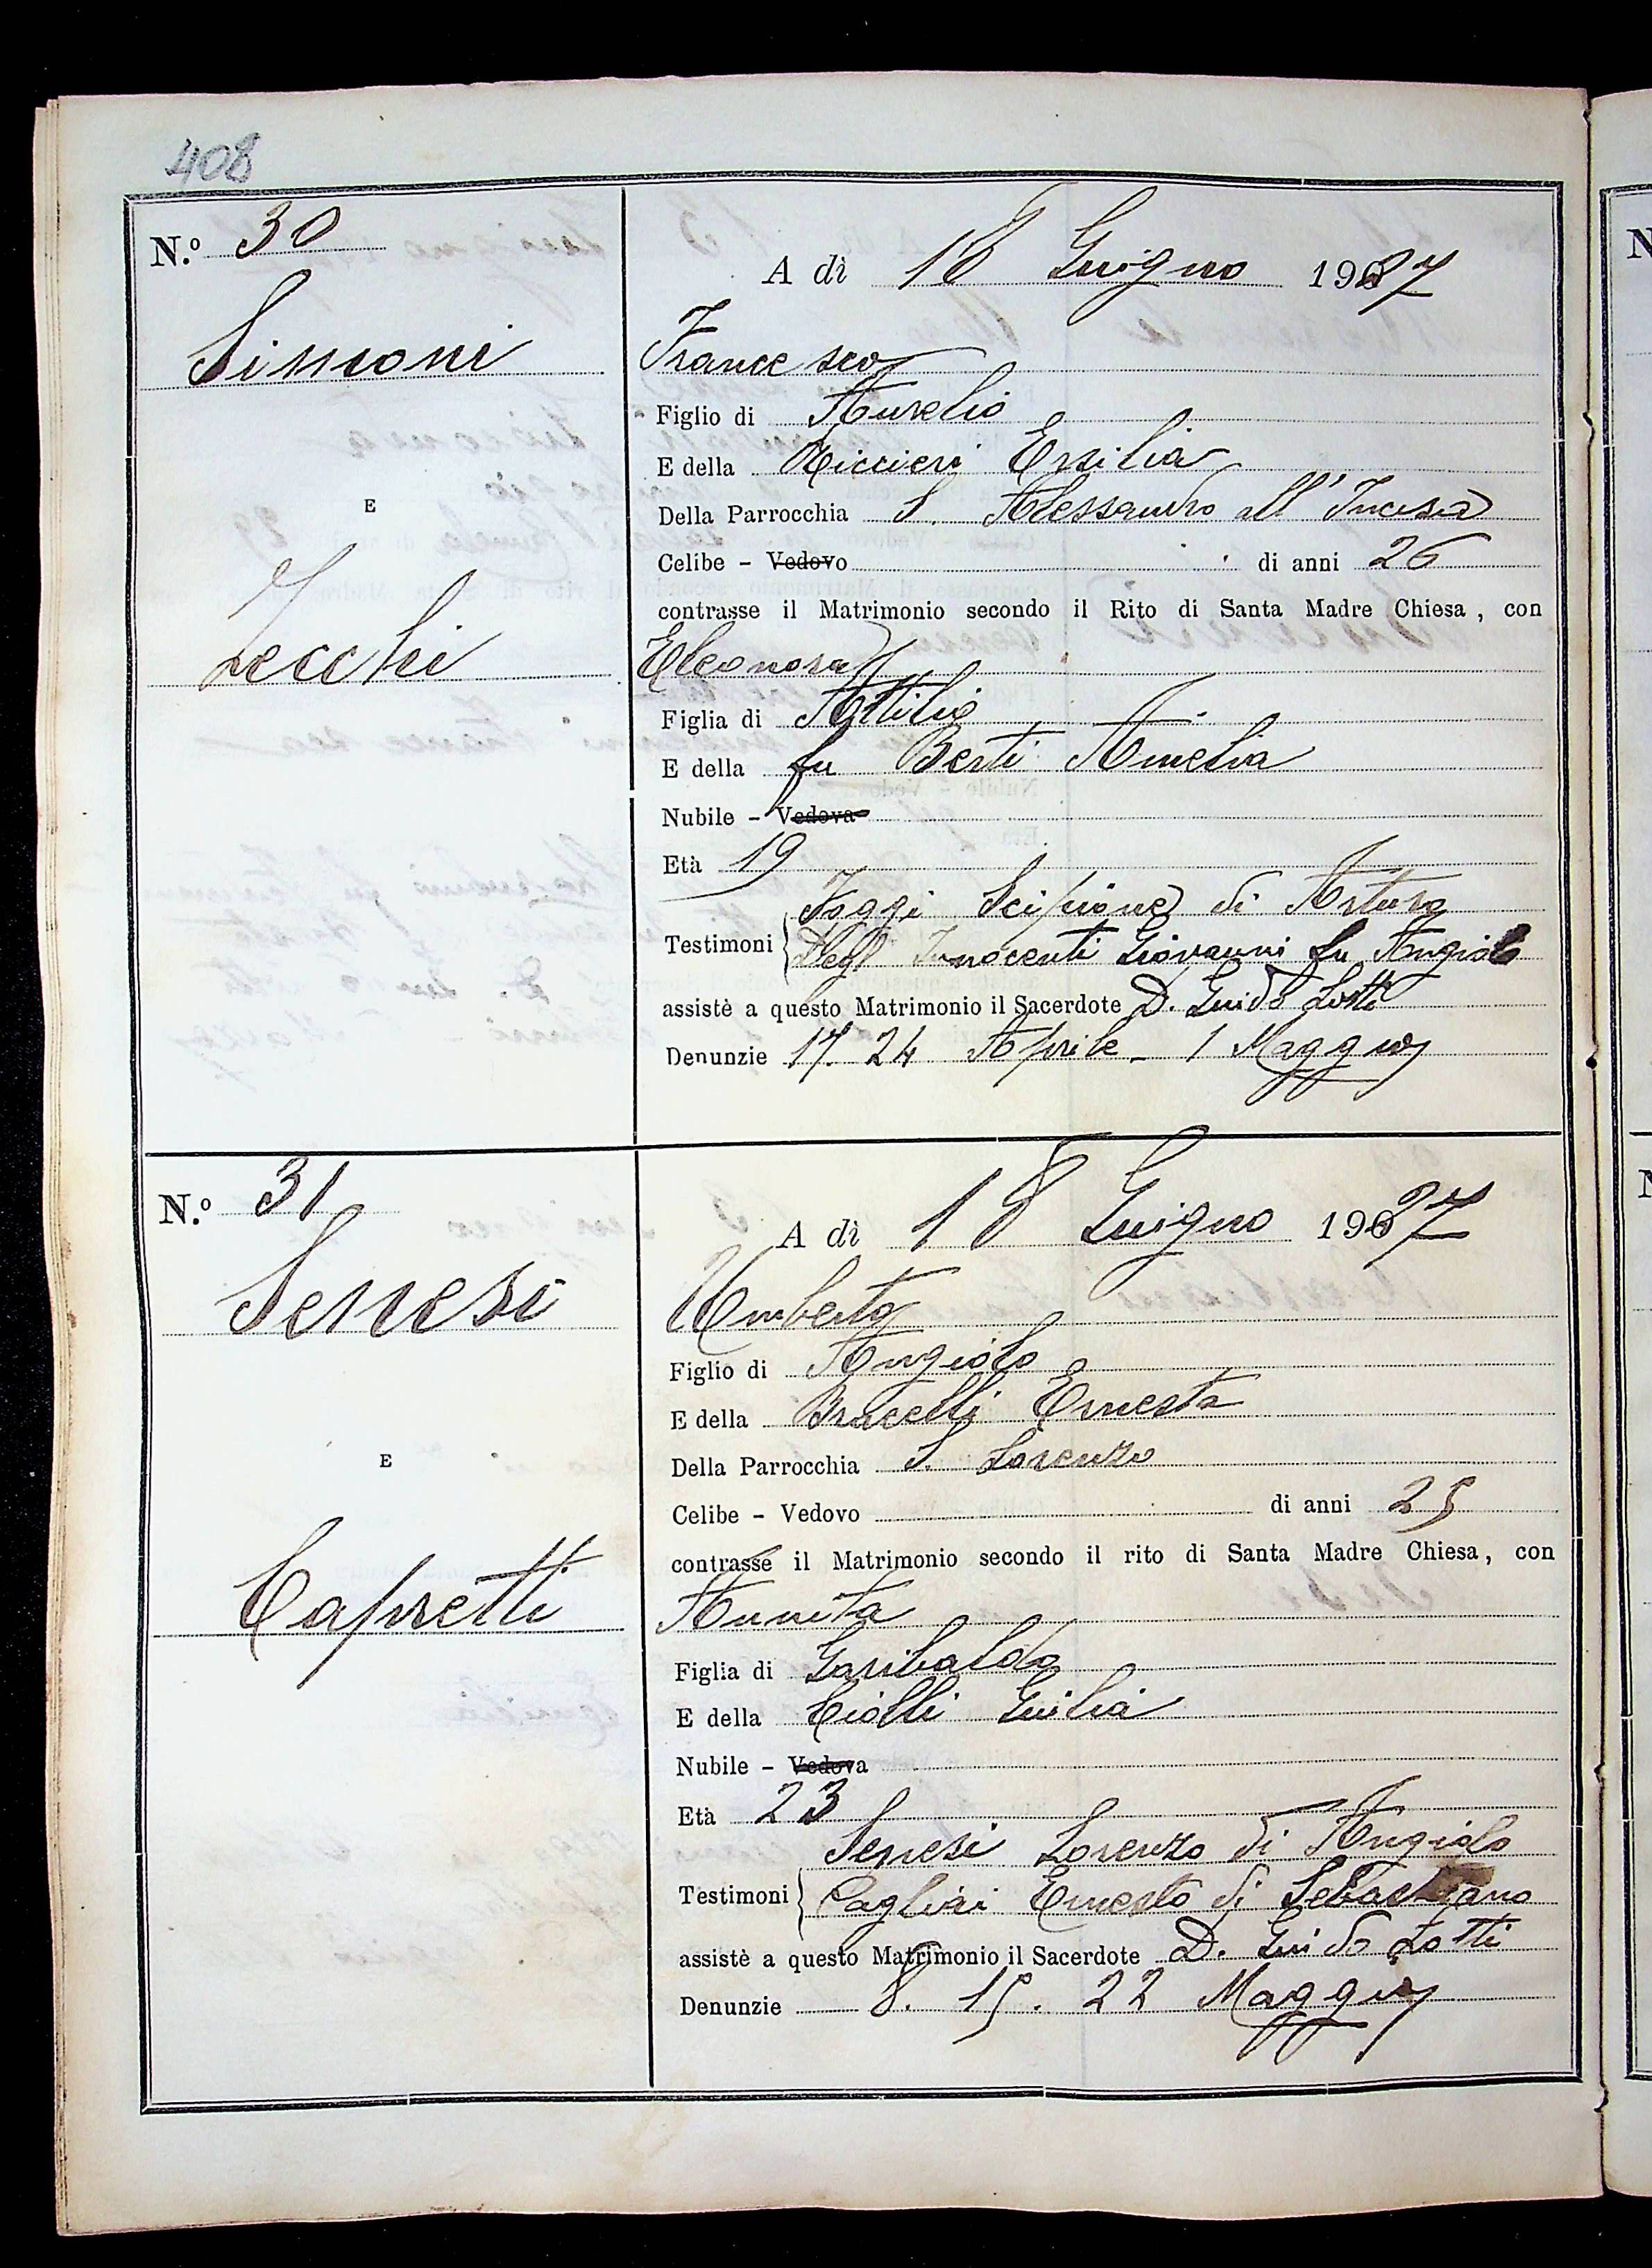 408
N.º 30
A dì 18 Giugno 1927
Simoni
Francesco
Figlio di Aurelio
E della Riccieri Ersilia
Della Parrocchia S. Alessandro all'Incisa
E
Celibe - Vedovo di anni 26
contrasse il Matrimonio secondo il Rito di Santa Madre Chiesa, con
Zecchi
Eleonora
Figlia di Attilio
E della fu Berti Amelia
Nubile - Vedova
Età 19
Testimoni Foggi Scipione di Arturo
Degl Innocenti Giovanni fu Angiolo
assistè a questo Matrimonio il Sacerdote D. Guido Lotti
Denunzie 17. 24 Aprile - 1 Maggio
N.º 31
A dì 18 Giugno 1927
Senesi
Umberto
Figlio di Angiolo
E della Bracelli Ernesta
Della Parrocchia S. Lorenzo
E
Celibe - Vedovo di anni 25
contrasse il Matrimonio secondo il rito di Santa Madre Chiesa, con
Capretti
Annita
Figlia di Garibaldo
E della Ciolli Giulia
Nubile - Vedova
Età 23
Testimoni Senesi Lorenzo di Angiolo
Cagliai Ernesto di Sebastiano
assistè a questo Matrimonio il Sacerdote D. Guido Lotti
Denunzie 8. 15. 22 Maggio